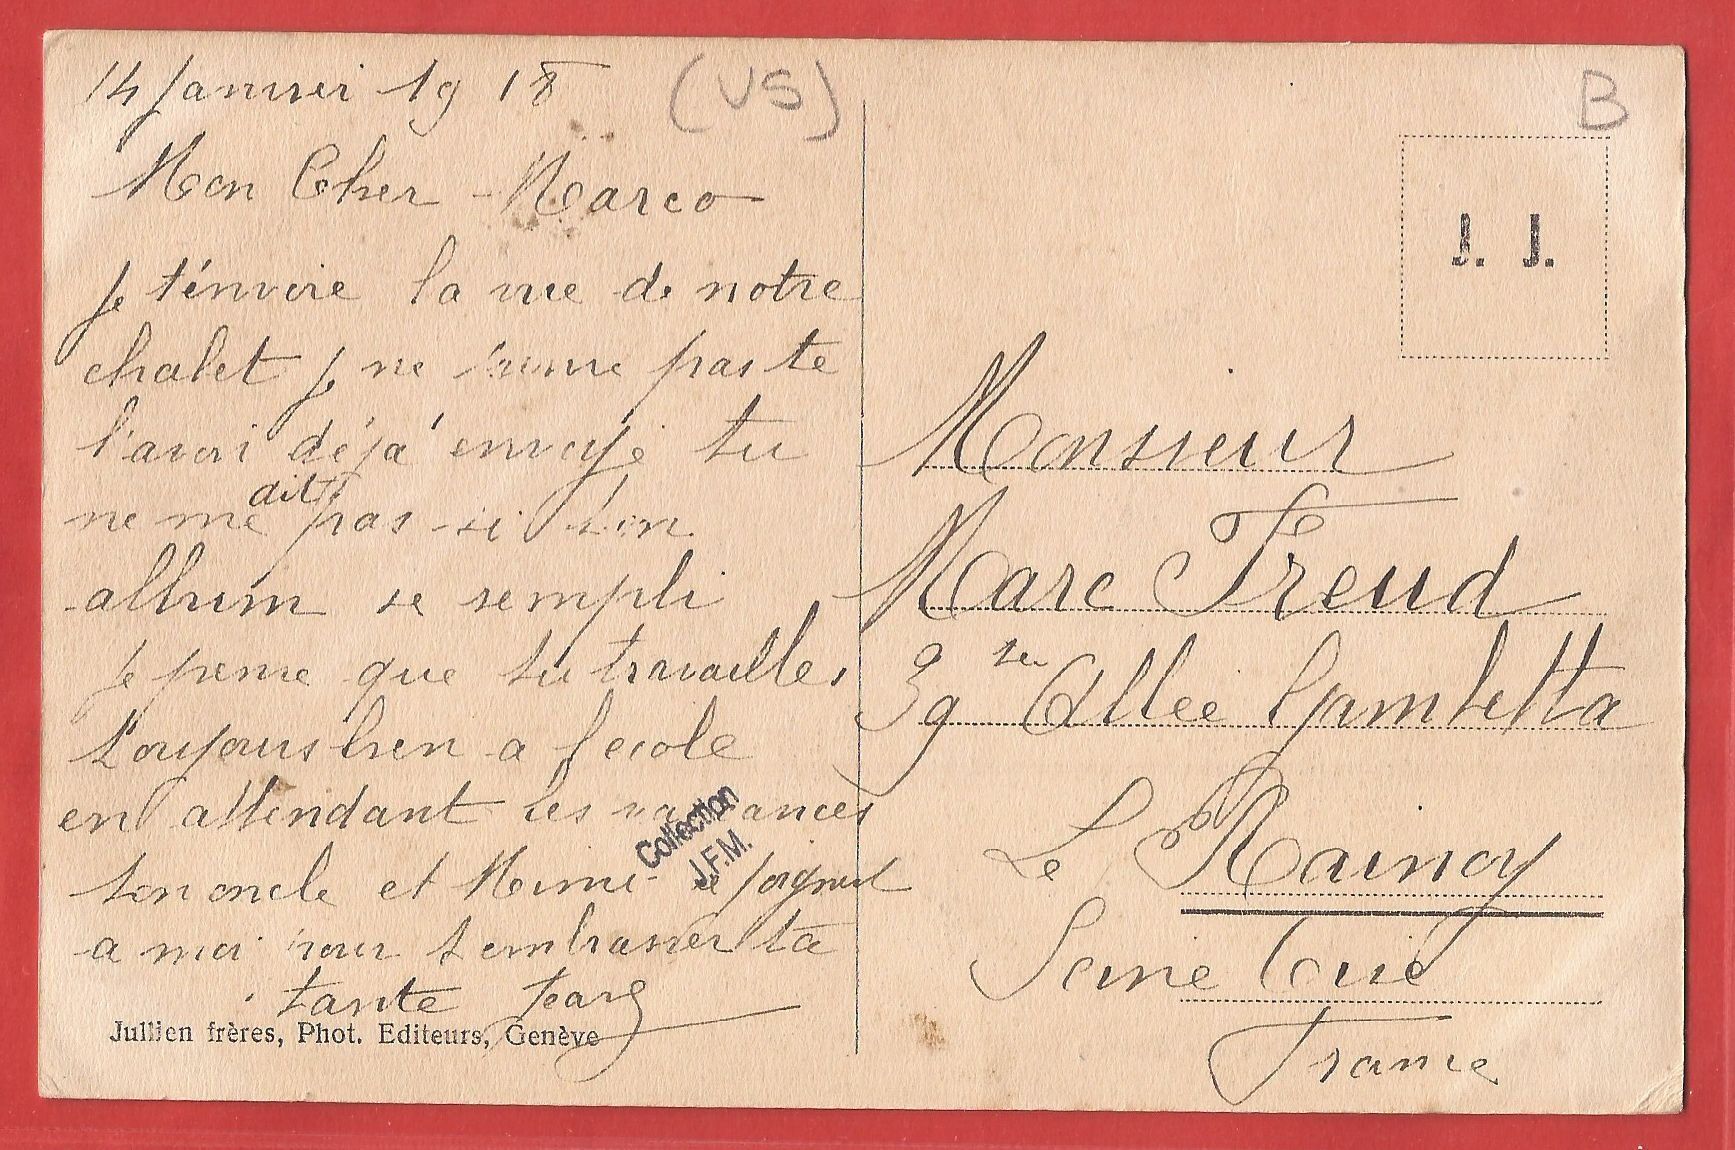 14 Janvier 1918
(VS)
B
Mon Cher Marco
Je t'envoie la vue de notre
chalet je ne pas te
l'avoir déjà envoyé tu
ne me dit pas si ton
album se rempli
Je pense que tu travailles
toujours bien a l'ecole
en attendant les vacances
ton oncle et Mimi se joignent
a moi pour t'embrasser ta
tante
Collection
J.F.M.
Jullien frères, Phot. Editeurs, Genève
J. J.
Monsieur
Marc Freud
39 ter Allée Gambetta
Le Raincy
Seine Oise
France